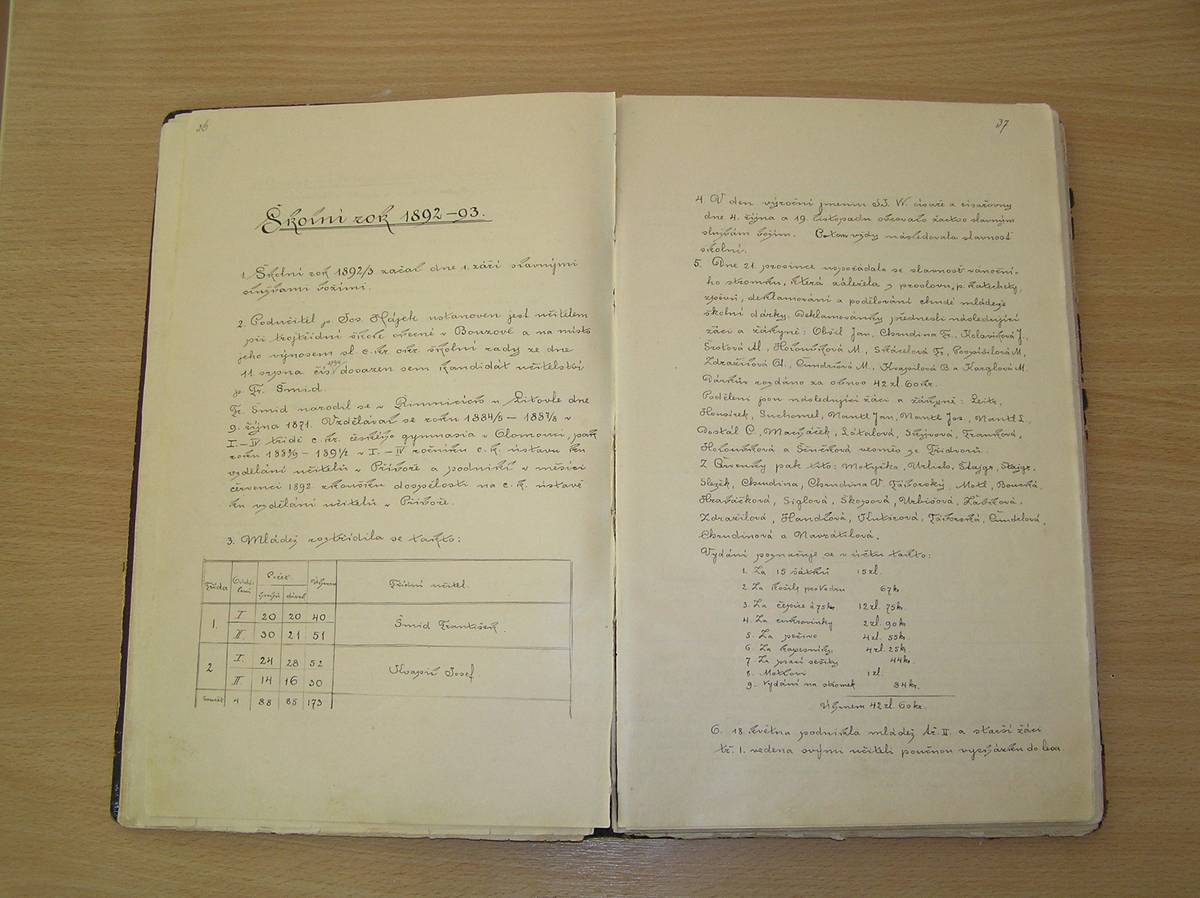 36
Školní rok 1892–93.
1. Školní rok 1892/3 začal dne 1. září slavnými
službami božími.
2. Podučitel p. Jos. Hájek ustanoven jest učitelem
při trojtřídní škole obecné v Bouzově a na místo
jeho výnosem sl. c. kr. okr. školní rady ze dne
11. srpna čís. dosazen sem kandidát učitelství
p. Fr. Šmid.
Fr. Šmid narodil se v Rimnicích u Litovle dne
9. října 1871. Vzdělával se roku 1884/5 – 1887/8 v
I.–IV. třídě c. kr. českého gymnasia v Olomouci, pak
roku 1888/9 – 1891/2 v I.–IV ročníku c. k. ústavu ku
vzdělání učitelů v Příboře a podnikl v měsíci
červenci 1892 zkoušku dospělosti na c. k. ústavě
ku vzdělání učitelů v Příboře.
3. Mládež roztřídila se takto:
Třída Oddělení Počet Úhrnem Třídní učitel.
hochů dívek
1. I 20 20 40 Šmid František.
II. 30 21 51
2 I. 24 28 52 Kvapil Josef
II 14 16 30
4 88 85 173
37
4. V den výroční jmenin J. V. císaře a císařovny
dne 4. října a 19. listopadu obcovalo žactvo slavným
službám božím. Potom vždy následovala slavnost
školní.
5. Dne 21. prosince uspořádala se slavnost vánoční-
ho stromku, která záležela z proslovu p. katechety,
zpěvů, deklamování a podělování chudé mládeže
školní dárky. Deklamovánky přednesli následující
žáci a žákyně: Obšil Jan, Chudina Fr., J.,
Šrotová Al., Holoubková M., Skácelová Fr., Pospíšilová M.,
Zdražilová M., Kvapilová B. a Karglová M.
Dárkův rozdáno za obnos 42 zl. 60 kr.
Poděleni jsou následující žáci a žákyně:
Konšírek, Suchomel, Mantl Jan, Mantl Jos., Mantl I.
Dostál C., Macháček, Látalová, Franková,
Holoubková a vesměs ze Tří dvorů.
Z pak tito: Motyčka, Urbiš, Štajgr, Štajgr,
Slezák, Chudina, Chudina V. Táborský, Motl,
Hrabáčková, Siglová, Skopová, Urbišová,
Zdražilová, Handlová, Táborská,
Chudinová a Navrátilová.
Vydání poznačuje se v účtu takto:
1. Za 15 šátků 15 zl.
2 Za košili pro 67 kr.
3. Za čepice à 75 kr 12 zl. 75 kr.
4. Za cukrovinky 2 zl. 90 kr
5. Za pečivo 4 zl. 55 kr.
6 Za kapesníky 4 zl. 25 kr.
7 Za psací sešity 44 kr.
8. 1 zl.
9. Vydání na stromek 84 kr.
Úhrnem 42 zl. 60 kr.
6. 18. května podnikla mládež tř. II. a starší žáci
tř. I. vedena svými učiteli poučnou vycházku do lesa.